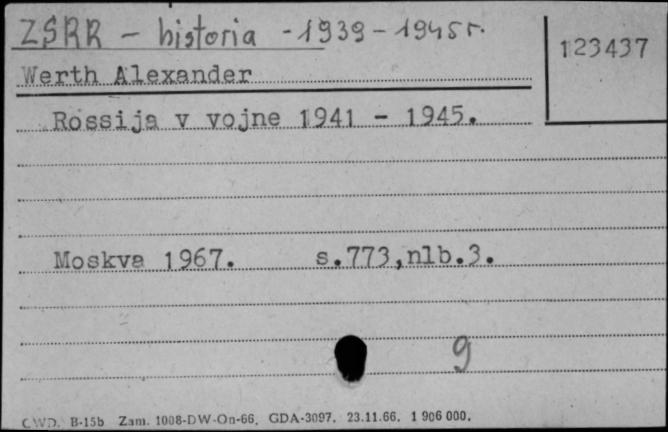 ZSRR - historia - 1939 - 1945 r.
123437
Werth Alexander
Rossija v vojne 1941 - 1945.
Moskva 1967. s.773,nlb.3.
9
CWD. B-15b Zam. 1008-DW-On-66. GDA-3097. 23.11.66. 1 906 000.